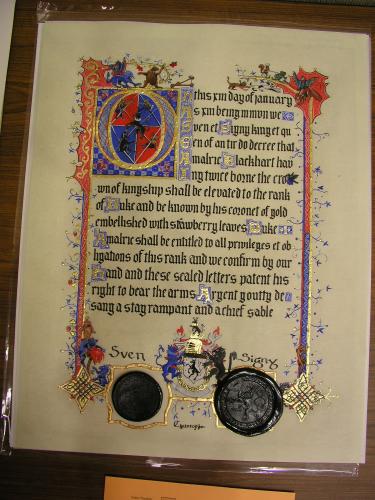 this day of january
being we
ven et Signy king et qu
en of an tir do decree that
malric Blackhart hav
ng twice borne the cro
wn of kingship shall be elevated to the rank
of Duke and be known by his coronet of gold
embellished with strawberry leaves Duke
Amalric shall be entitled to all privileges et ob
ligations of this rank and we confirm by our
hand and these sealed letters patent his
right to bear the arms Argent goutty de
sang a stag rampant and a chief sable
Sven Signy